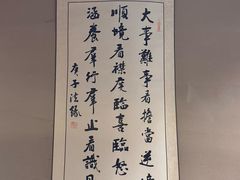 大事難事看擔當逆境
順境看襟度臨喜臨怒
涵養羣行羣止看識
庚子